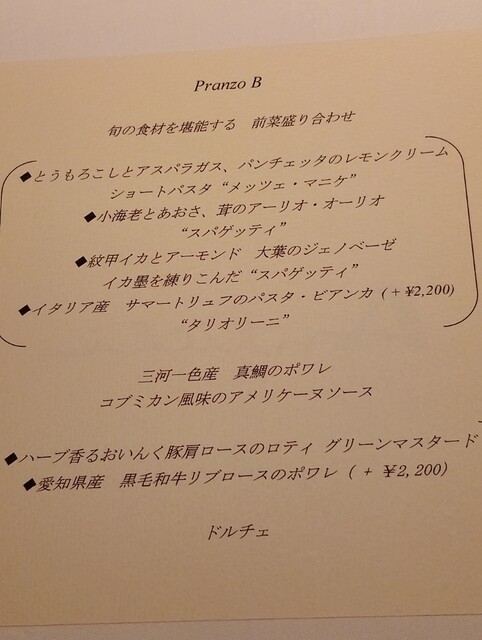 Pranzo B
旬の食材を堪能する　前菜盛り合わせ
◆とうもろこしとアスパラガス、パンチェッタのレモンクリーム
ショートパスタ “メッツェ・マニケ”
◆小海老とあおさ、茸のアーリオ・オーリオ
“スパゲッティ”
◆紋甲イカとアーモンド　大葉のジェノベーゼ
イカ墨を練りこんだ “スパゲッティ”
◆イタリア産　サマートリュフのパスタ・ビアンカ (+¥2,200)
“タリオリーニ”
三河一色産　真鯛のポワレ
コブミカン風味のアメリケーヌソース
◆ハーブ香るおいんく豚肩ロースのロティ グリーンマスタード
◆愛知県産　黒毛和牛リブロースのポワレ ( + ¥2,200)
ドルチェ